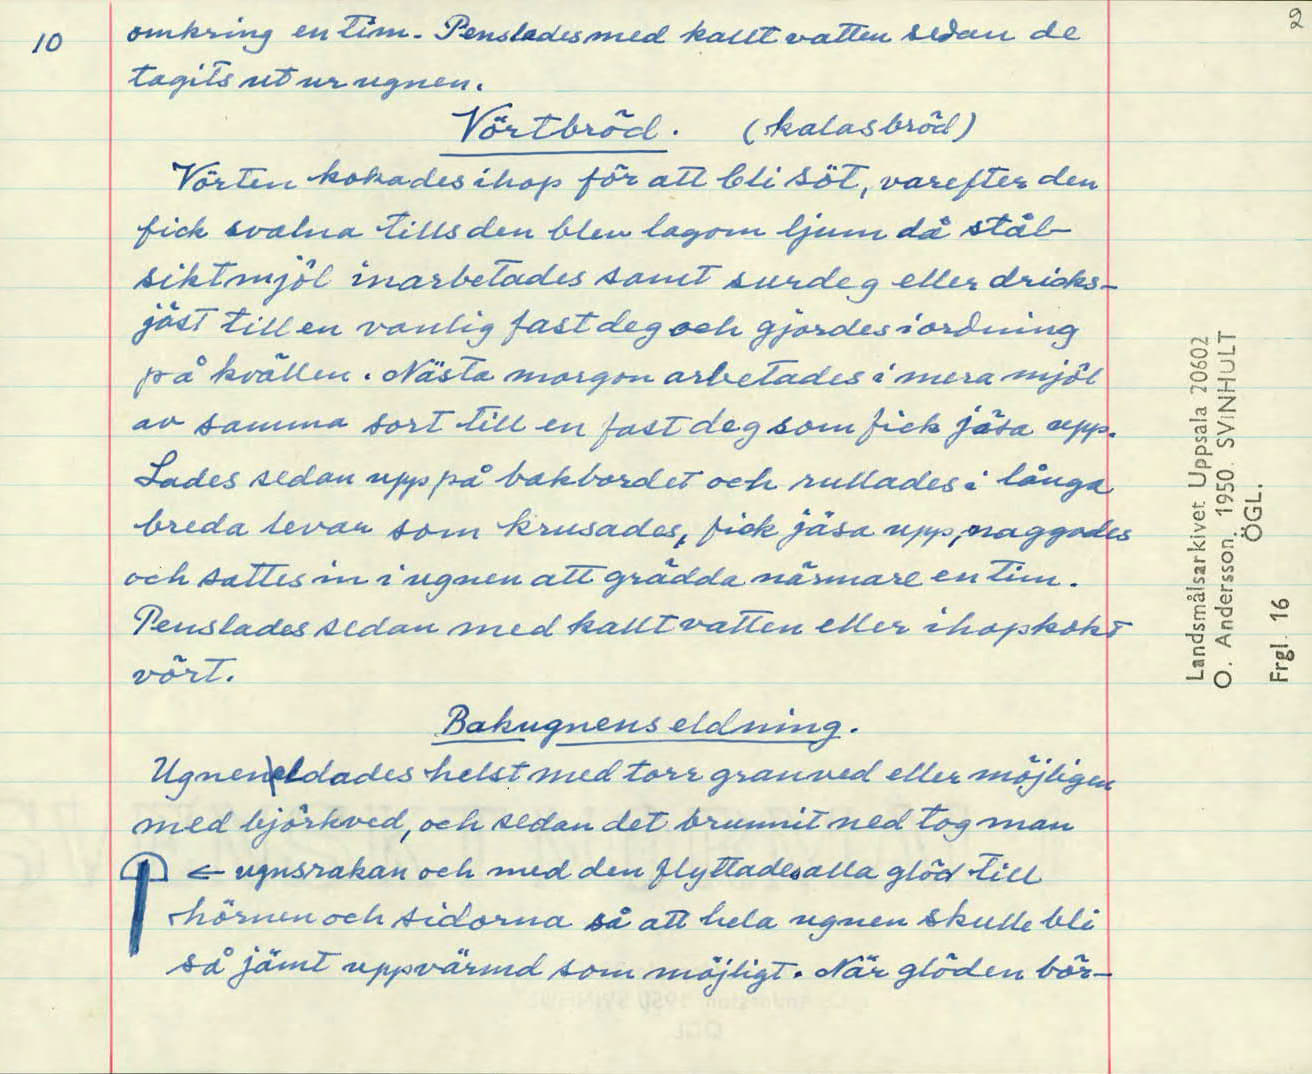 2
10
omkring en tim. Penslades med kallt vatten sedan de
tagits ut ur ugnen.
Vörtbröd. (kalasbröd)
Vörten kokades ihop för att bli söt, varefter den
fick svalna tills den blev lagom ljum då stål-
siktmjöl inarbetades samt surdeg eller dricks-
jäst till en vanlig fast deg och gjordes i ordning
på kvällen. Nästa morgon arbetades i mera mjöl
av samma sort till en fast deg som fick jäsa upp.
Lades sedan upp på bakbordet och rullades i långa
breda levar som krusades, fick jäsa upp, naggades
och sattes in i ugnen att grädda närmare en tim.
Penslades sedan med kallt vatten eller ihopkokt
vört.
Bakugnens eldning.
Ugnen eldades helst med torr granved eller möjligen
med björkved, och sedan det brunnit ned tog man
← ugnsrakan och med den flyttades alla glöd till
hörnen och sidorna så att hela ugnen skulle bli
så jämt uppvärmd som möjligt. När glöden bör-
Landsmålsarkivet Uppsala 20602
O. Andersson. 1950. SVINHULT
ÖGL.
Frgl. 16